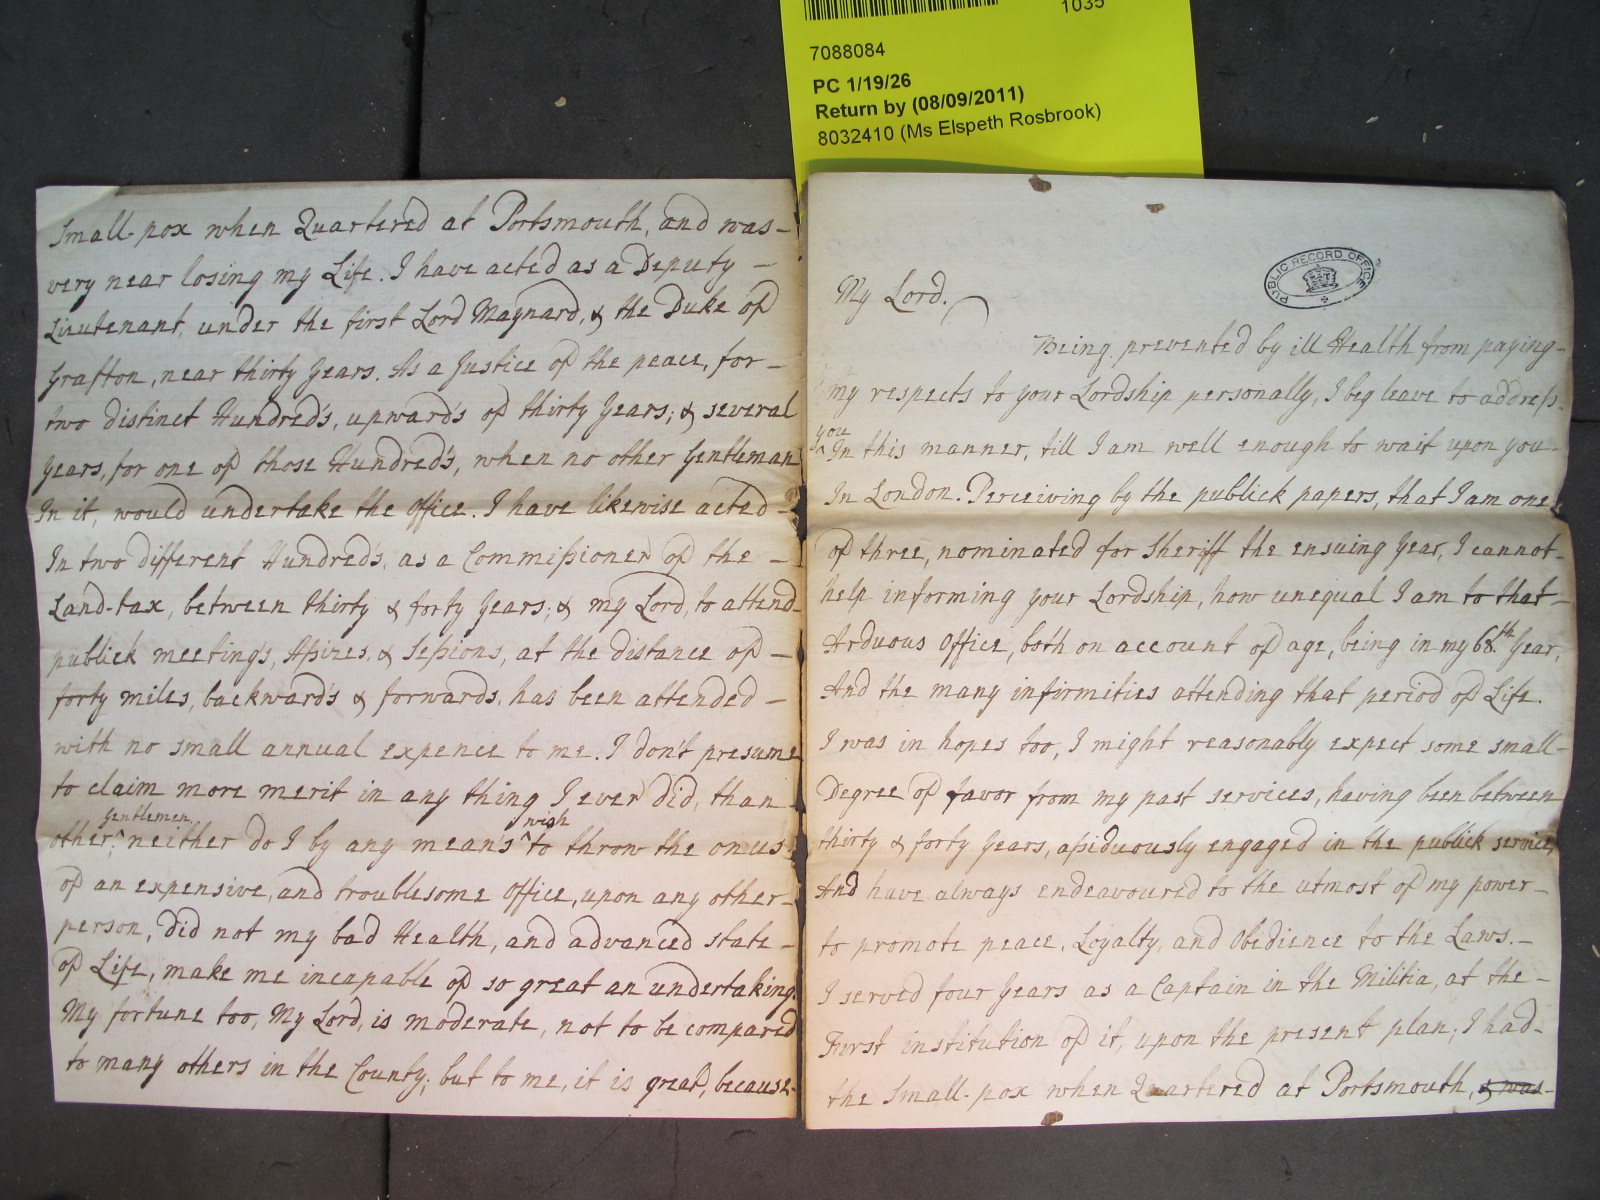 1035
7088084
PC 1/19/26
Return by (08/09/2011)
8032410 (Ms Elspeth Rosbrook)
Small-pox when Quartered at Portsmouth, and was-
very near losing my Life. I have acted as a Deputy -
Lieutenant, under the first Lord Maynard, & the Duke of
Grafton, near thirty Years. As a Justice of the peace, for -
two distinct Hundred's, upward's of thirty Years; & several
Years, for one of those Hundred's, when no other Gentleman
In it, would undertake the Office. I have likewise acted -
In two different Hundred's, as a Commissioner of the -
Land-tax, between thirty & forty Years; & my Lord, to attend-
publick meeting's, Assizes, & Sessions, at the distance of -
forty miles, backward's & forwards, has been attended -
with no small annual expence to me. I don't presume
to claim more merit in any thing I ever did, than -
Gentlemen, wish
other^; neither do I by any mean's ^ to throw the onus-
of an expensive, and troublesome Office, upon any other-
person, did not my bad Health, and advanced state -
of Life, make me incapable of so great an undertaking.
My fortune too, My Lord, is moderate, not to be compared
to many others in the County; but to me, it is great, because-
PUBLIC RECORD OFFICE
My Lord.
Being prevented by ill Health from paying-
my respects to your Lordship personally, I beg leave to address-
you
^ In this manner, till I am well enough to wait upon you-
In London. Perceiving by the publick papers, that I am one
of three, nominated for Sheriff the ensuing Year, I cannot-
help informing your Lordship, how unequal I am to that-
Arduous Office, both on account of age, being in my 68th Year,
And the many infirmities attending that period of Life.
I was in hopes too, I might reasonably expect some small-
Degree of favor from my past services, having been between
thirty & forty Years, assiduously engaged in the publick service,
And have always endeavoured to the utmost of my power-
to promote peace, Loyalty, and Obedience to the Laws. -
I served four Years as a Captain in the Militia, at the -
First institution of it, upon the present plan; I had-
the Small-pox when Quartered at Portsmouth, & was-